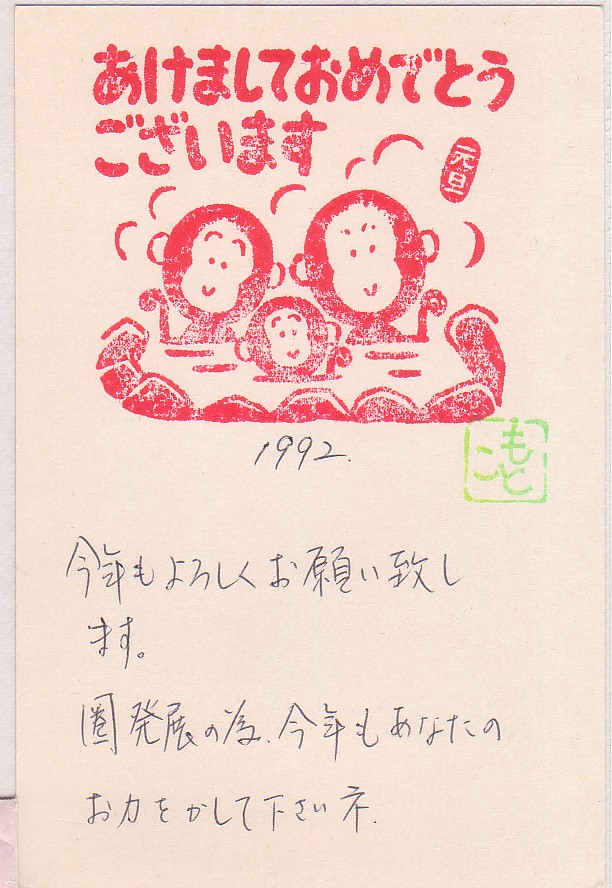 あけましておめでとう
ございます
元旦
1992.
もとこ
今年もよろしくお願い致し
ます。
圏発展の為、今年もあなたの
お力をかして下さいネ.